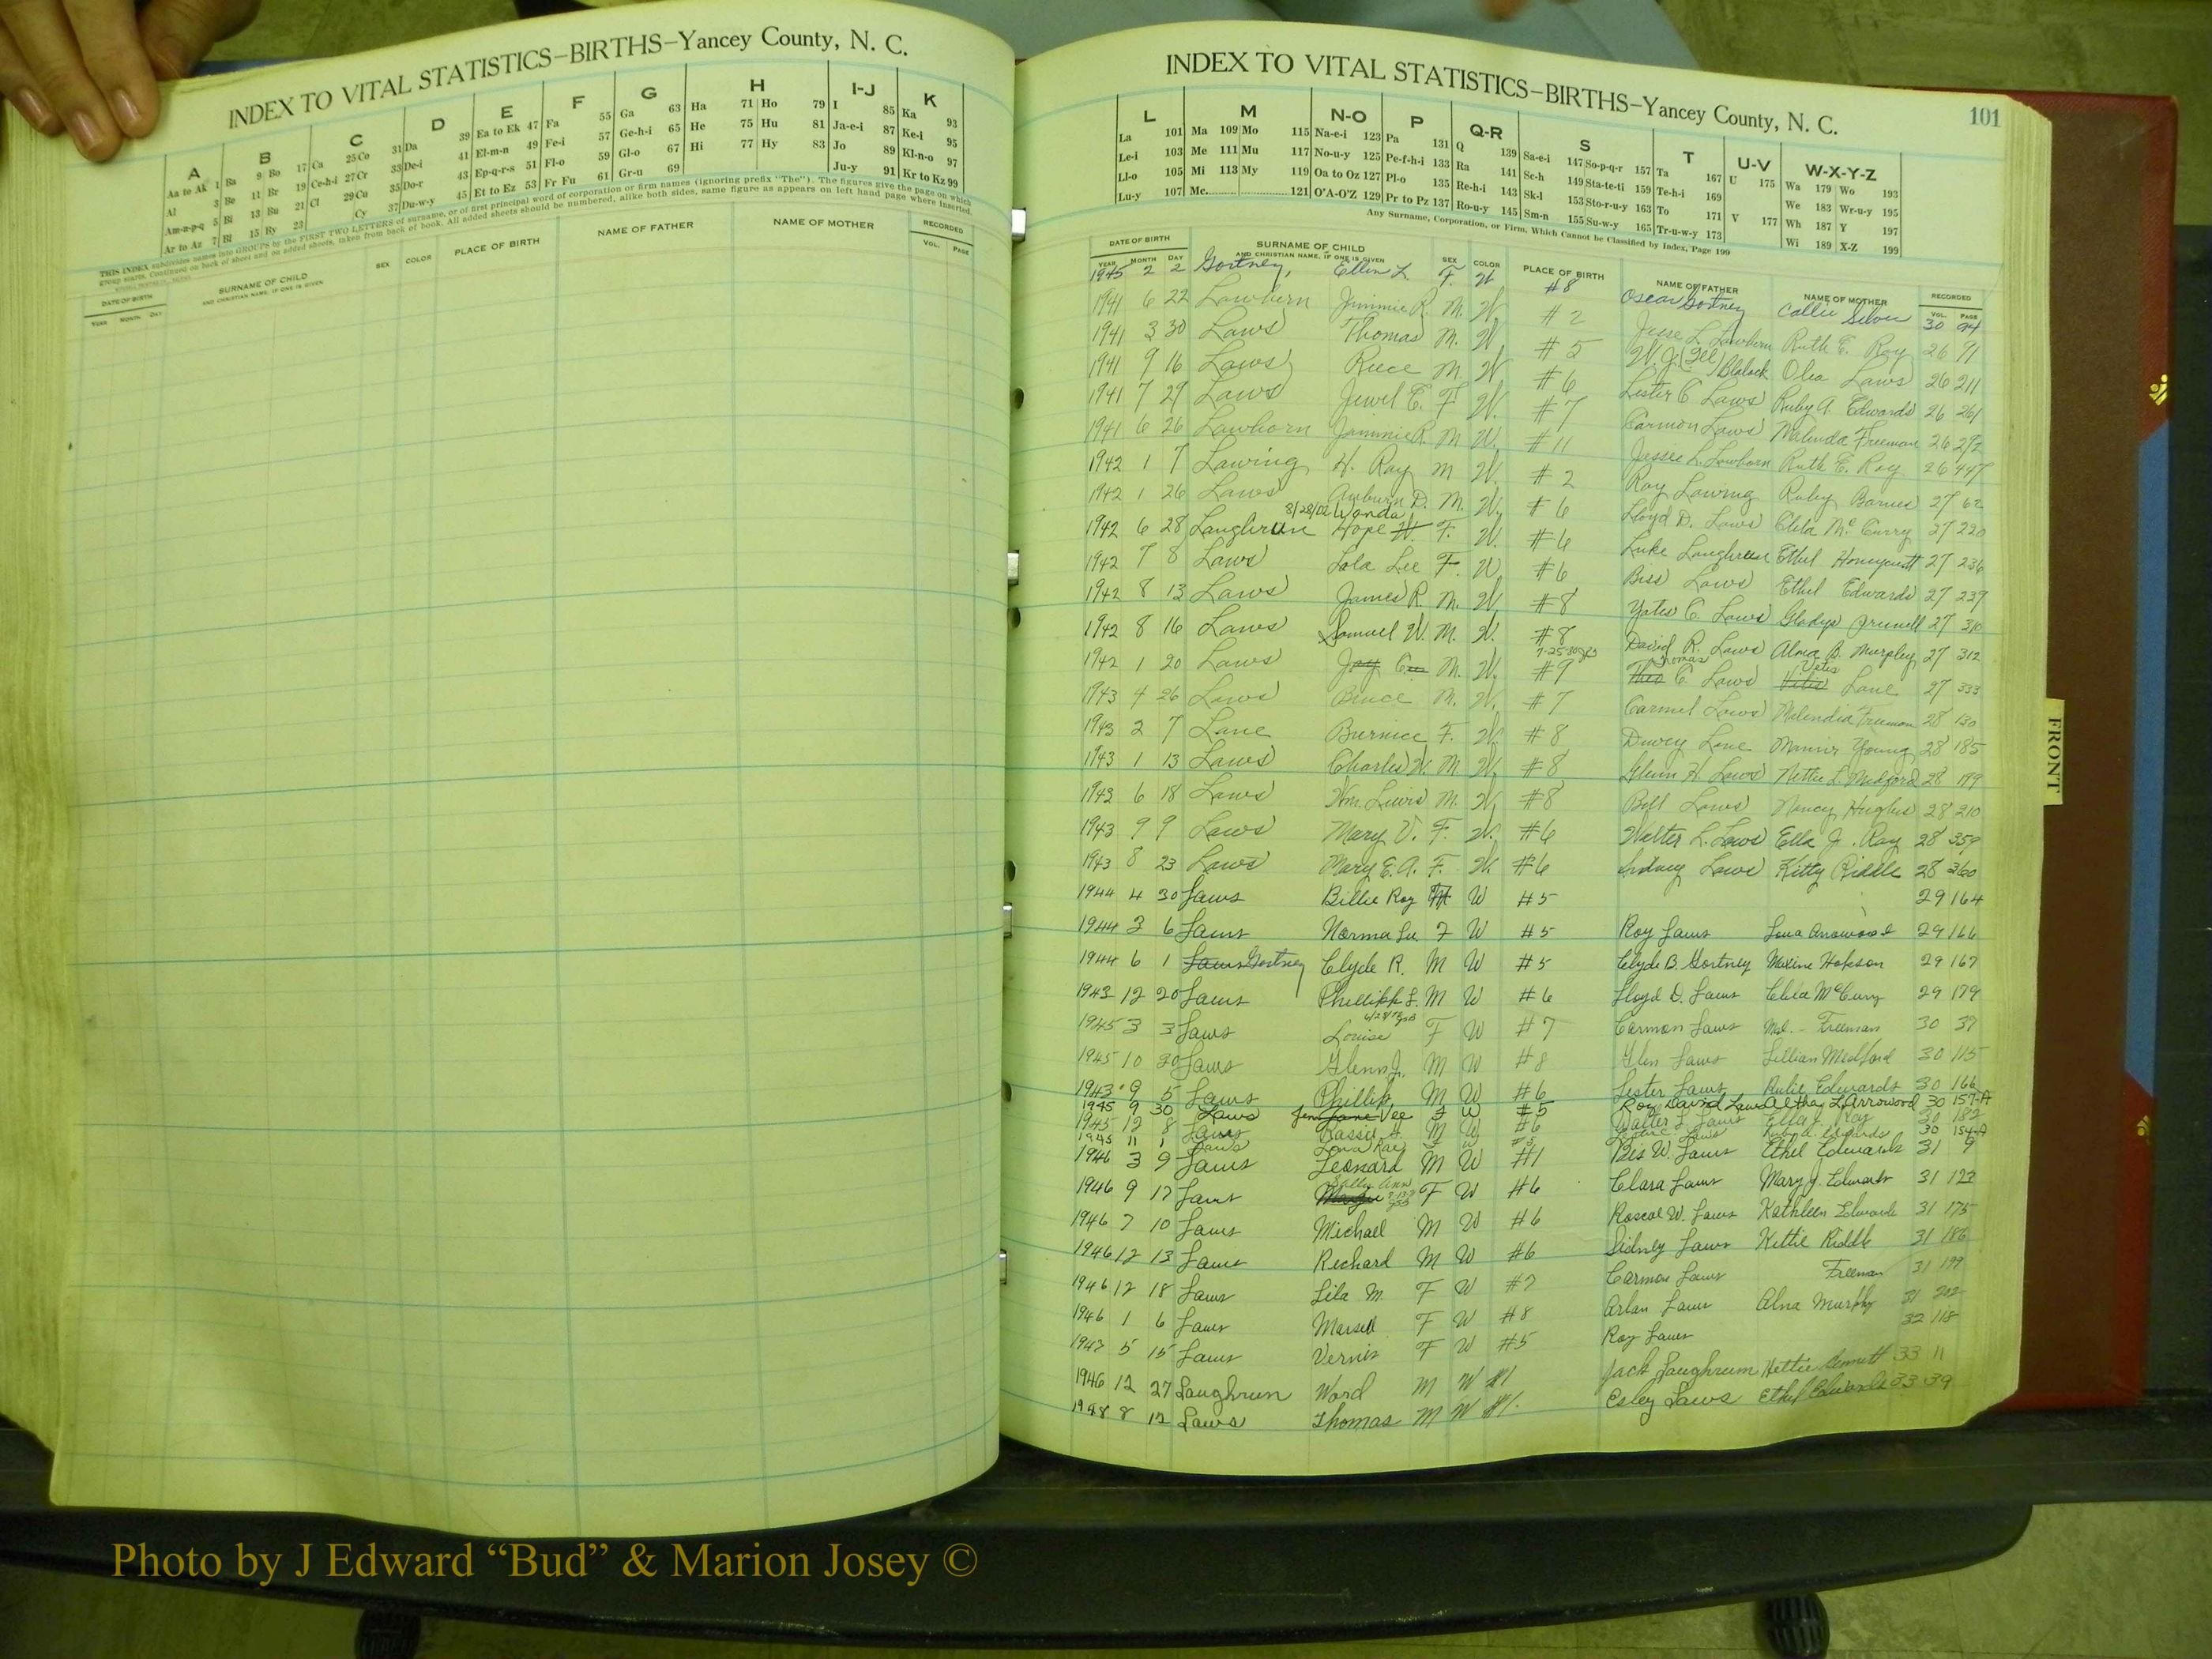 INDEX TO VITAL STATISTICS—BIRTHS—Yancey County, N. C.
A B C D E F G H I-J K
Aa to Ak 1 Ba 9 Bo 17 Ca 25 Co 31 Da 39 Ea to Ek 47 Fa 55 Ga 63 Ha 71 Ho 79 I 85 Ka 93
Al 3 Be 11 Br 19 Ce-h-i 27 Cr 33 De-i 41 El-m-n 49 Fe-i 57 Ge-h-i 65 He 75 Hu 81 Ja-e-i 87 Ke-i 95
Am-n-p-q 5 Bi 13 Bu 21 Cl 29 Cu 35 Do-r 43 Ep-q-r-s 51 Fl-o 59 Gl-o 67 Hi 77 Hy 83 Jo 89 Kl-n-o 97
Ar to Az 7 Bl 15 By 23 Cy 37 Du-w-y 45 Et to Ez 53 Fr Fu 61 Gr-u 69 Ju-y 91 Kr to Kz 99
THIS INDEX subdivides names into GROUPS by the FIRST TWO LETTERS of surname, or of first principal word of corporation or firm names (ignoring prefix "The"). The figures give the page on which
group starts. Continued on back of sheet and on added sheets, taken from back of book. All added sheets should be numbered, alike both sides, same figure as appears on left hand page where inserted.
DATE OF BIRTH SURNAME OF CHILD SEX COLOR PLACE OF BIRTH NAME OF FATHER NAME OF MOTHER RECORDED
YEAR MONTH DAY AND CHRISTIAN NAME, IF ONE IS GIVEN VOL. PAGE
INDEX TO VITAL STATISTICS—BIRTHS—Yancey County, N. C. 101
L M N-O P Q-R S T U-V W-X-Y-Z
La 101 Ma 109 Mo 115 Na-e-i 123 Pa 131 Q 139 Sa-e-i 147 So-p-q-r 157 Ta 167 U 175 Wa 179 Wo 193
Le-i 103 Me 111 Mu 117 No-u-y 125 Pe-f-h-i 133 Ra 141 Sc-h 149 Sta-te-ti 159 Te-h-i 169 We 183 Wr-u-y 195
Ll-o 105 Mi 113 My 119 Oa to Oz 127 Pl-o 135 Re-h-i 143 Sk-l 153 Sto-r-u-y 163 To 171 V 177 Wh 187 Y 197
Lu-y 107 Mc 121 O'A-O'Z 129 Pr to Pz 137 Ro-u-y 145 Sm-n 155 Su-w-y 165 Tr-u-w-y 173 Wi 189 X-Z 199
Any Surname, Corporation, or Firm, Which Cannot be Classified by Index, Page 199
DATE OF BIRTH SURNAME OF CHILD SEX COLOR PLACE OF BIRTH NAME OF FATHER NAME OF MOTHER RECORDED
YEAR MONTH DAY AND CHRISTIAN NAME, IF ONE IS GIVEN VOL. PAGE
1945 2 2 Gortney, Ellen L. F. W #8 Oscar Gortney Callie Silver 30 94
1941 6 22 Lawhern Jimmie R. M. W. #2 Jesse L. Lawhern Ruth E. Ray 26 91
1941 3 30 Laws Thomas M. W #5 W. J. Blalock Olia Laws 26 211
1941 9 16 Laws Reece M. W #6 Lester C Laws Ruby A. Edwards 26 261
1941 7 29 Laws Jewel E. F W. #7 Carmon Laws Malinda Freeman 26 292
1941 6 26 Lawhorn Jimmie R. M W. #11 Jesse L. Lawhorn Ruth E. Ray 26 447
1942 1 7 Lawing H. Ray M W. #2 Ray Lawing Ruby Barnes 27 62
1942 1 26 Laws Auburn D. M. W. #6 Lloyd D. Laws Clela McCurry 27 220
8/28/02 Wanda
1942 6 28 Laughrun Hope W. F. W. #6 Luke Laughrun Ethel Honeycutt 27 236
1942 7 8 Laws Lola Lee F. W #6 Biss Laws Ethel Edwards 27 237
1942 8 13 Laws James R. M. W. #8 Yates C. Laws Gladys 27 310
1942 8 16 Laws Samuel W. M. W. #8 David R. Laws Alma B. Murphy 27 312
Thomas
1942 1 20 Laws M. W. #9 C. Laws Lane 27 333
1943 4 26 Laws Bruce M. W. #7 Carmel Laws Malendia Freeman 28 130
1943 2 7 Lane Burnice F. W. #8 Dewey Lane Young 28 185
1943 1 13 Laws Charles W. M. W. #8 Glenn H. Laws Nettie L. Medford 28 199
1943 6 18 Laws Wm. Lewis M. W. #8 Bill Laws Nancy Hughes 28 210
1943 9 9 Laws Mary V. F. W. #6 Walter L. Laws Ella J. Ray 28 359
1943 8 23 Laws Mary E. A. F. W. #6 Sidney Laws Kitty Riddle 28 360
1944 4 30 Laws Billie Roy W #5 29 164
1944 3 6 Laws Norma Lu F W #5 Roy Laws Arrowood 29 166
1944 6 1 Laws Gortney Clyde R. M W #5 Clyde B. Gortney Maxine Hobson 29 167
1943 12 20 Laws Phillip L. M W #6 Lloyd D. Laws Clela McCurry 29 179
1945 3 3 Laws Louise F W #7 Carmon Laws Mal. Freeman 30 37
1945 10 30 Laws Glenn J. M W #8 Glen Laws Lillian Medford 30 115
1943 9 5 Laws Phillip M W #6 Lester Laws Edwards 30 166
1945 9 30 Laws Vee F W #5 Roy David Laws Altha L. Arrowood 30 157-A
1945 12 8 Laws M W #6 Walter L. Laws Ella J. Ray 30 182
1945 11 1 Laws F W #5 Laws Edwards 30 154-A
1946 3 9 Laws Leonard M W #1 Bis W. Laws Ethel Edwards 31 9
Sally Ann
1946 9 17 Laws F W #6 Clara Laws Mary J. Edwards 31 123
1946 7 10 Laws Michael M W #6 Roscoe W. Laws Kathleen Edwards 31 175
1946 12 13 Laws Richard M W #6 Sidney Laws Kittie Riddle 31 186
1946 12 18 Laws Lila M. F W #7 Carmon Laws Freeman 31 199
1946 1 6 Laws F W #8 Arlan Laws Alna Murphy 31 202
1947 5 15 Laws Vernis F W #5 Roy Laws 32 118
1946 12 27 Laughrun Word M W #1 Jack Laughrun Hettie Bennett 33 11
1948 8 12 Laws Thomas M W #1. Esley Laws Ethel Edwards 33 39
FRONT
Photo by J Edward “Bud” & Marion Josey ©